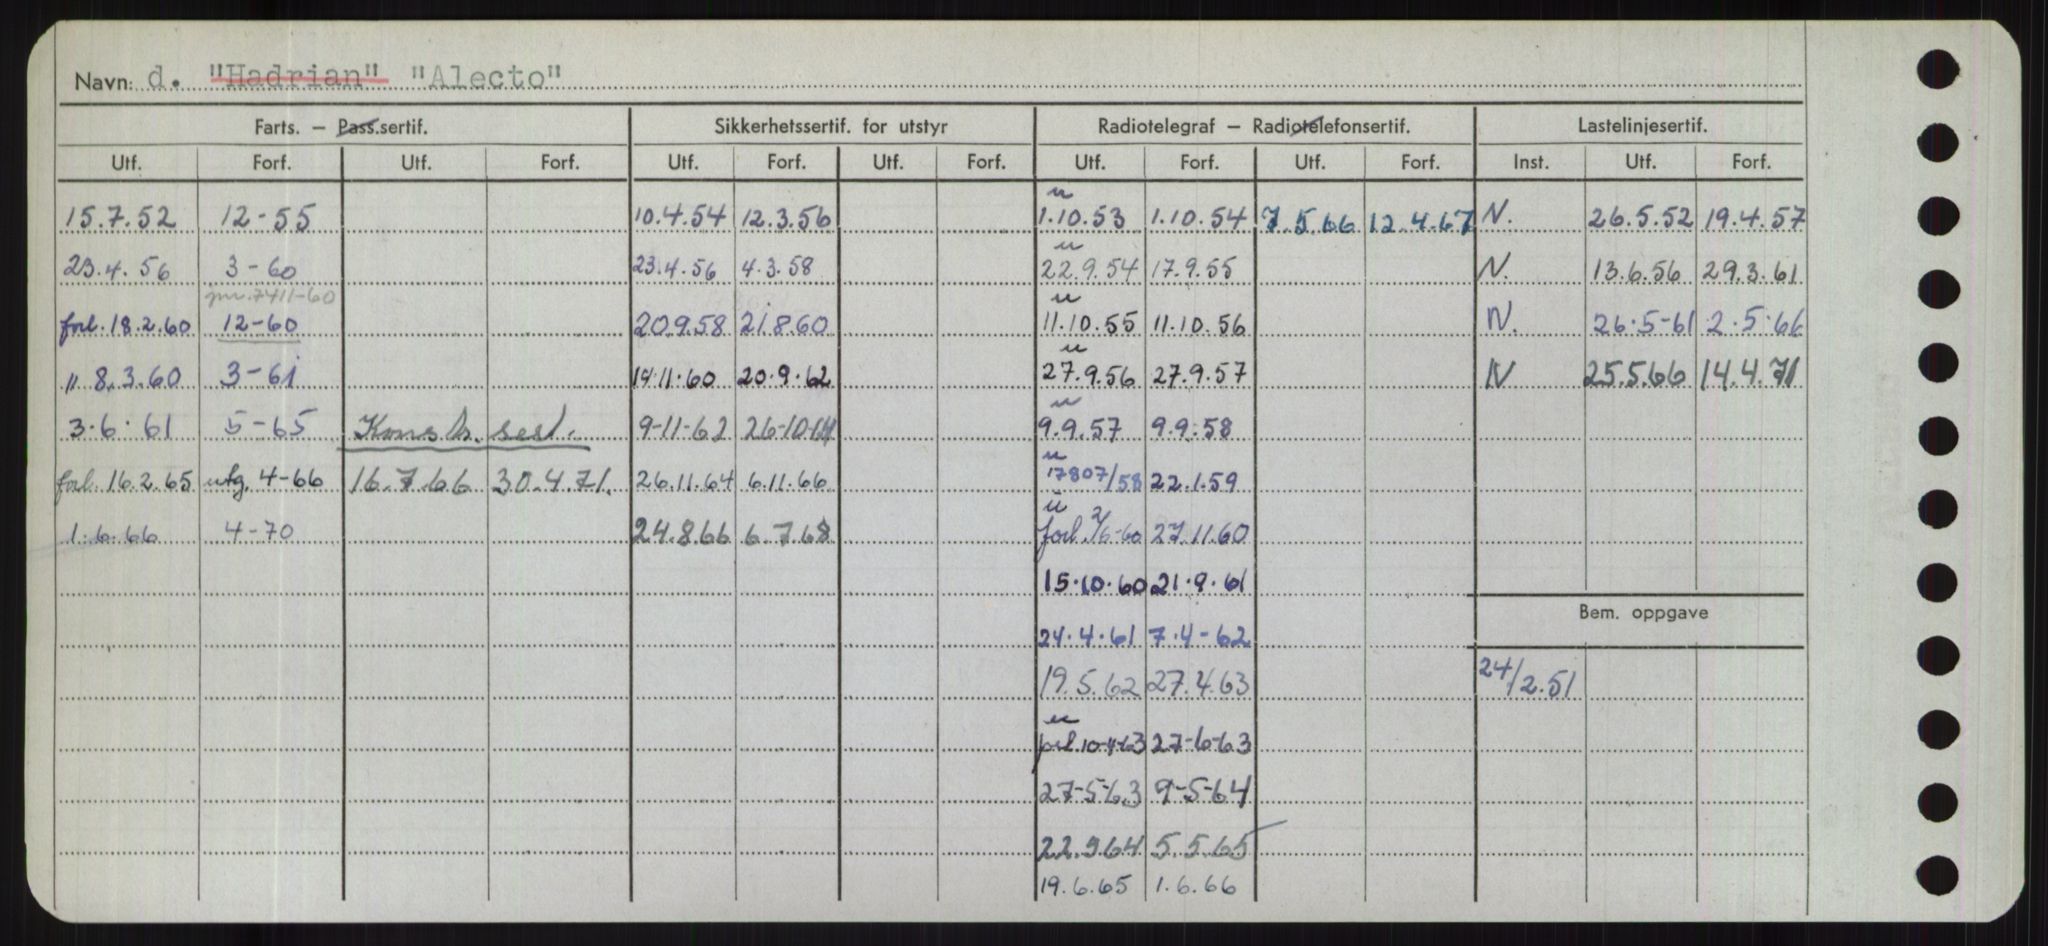 Navn: d. "Hadrian" "Alecto"
Farts. – Pass.sertif. Sikkerhetssertif. for utstyr Radiotelegraf – Radiotelefonsertif. Lastelinjesertif.
Utf. Forf. Utf. Forf. Utf. Forf. Utf. Forf. Utf. Forf. Utf. Forf. Inst. Utf. Forf.
u
15.7.52 12-55 10.4.54 12.3.56 1.10.53 1.10.54 7.5.66 12.4.67 N. 26.5.52 19.4.57
u
23.4.56 3-60 23.4.56 4.3.58 22.9.54 17.9.55 N. 13.6.56 29.3.61
7411-60 u
forl. 18.2.60 12-60 20.9.58 21.8.60 11.10.55 11.10.56 N. 26.5-61 2.5.66
u
" 8.3.60 3-61 14.11.60 20.9.62 27.9.56 27.9.57 N 25.5.66 14.4.71
u
3.6.61 5-65 Konstr. sert. 9-11-62 26-10-64 9.9.57 9.9.58
u
forl. 16.2.65 utg. 4-66 16.7.66 30.4.71. 26.11.64 6.11.66 17807/58 22.1.59
u
1.6.66 4-70 24.8.66 6.7.68 forl. 2/6-60 27.11.60
15.10.60 21.9.61
Bem. oppgave
24.4.61 7.4-62
19.5.62 27.4.63 24/2.51
u
forl. 10-4-63 27-6-63
27-5-63 9-5-64
22.5.64 5.5.65
19.6.65 1.6.66